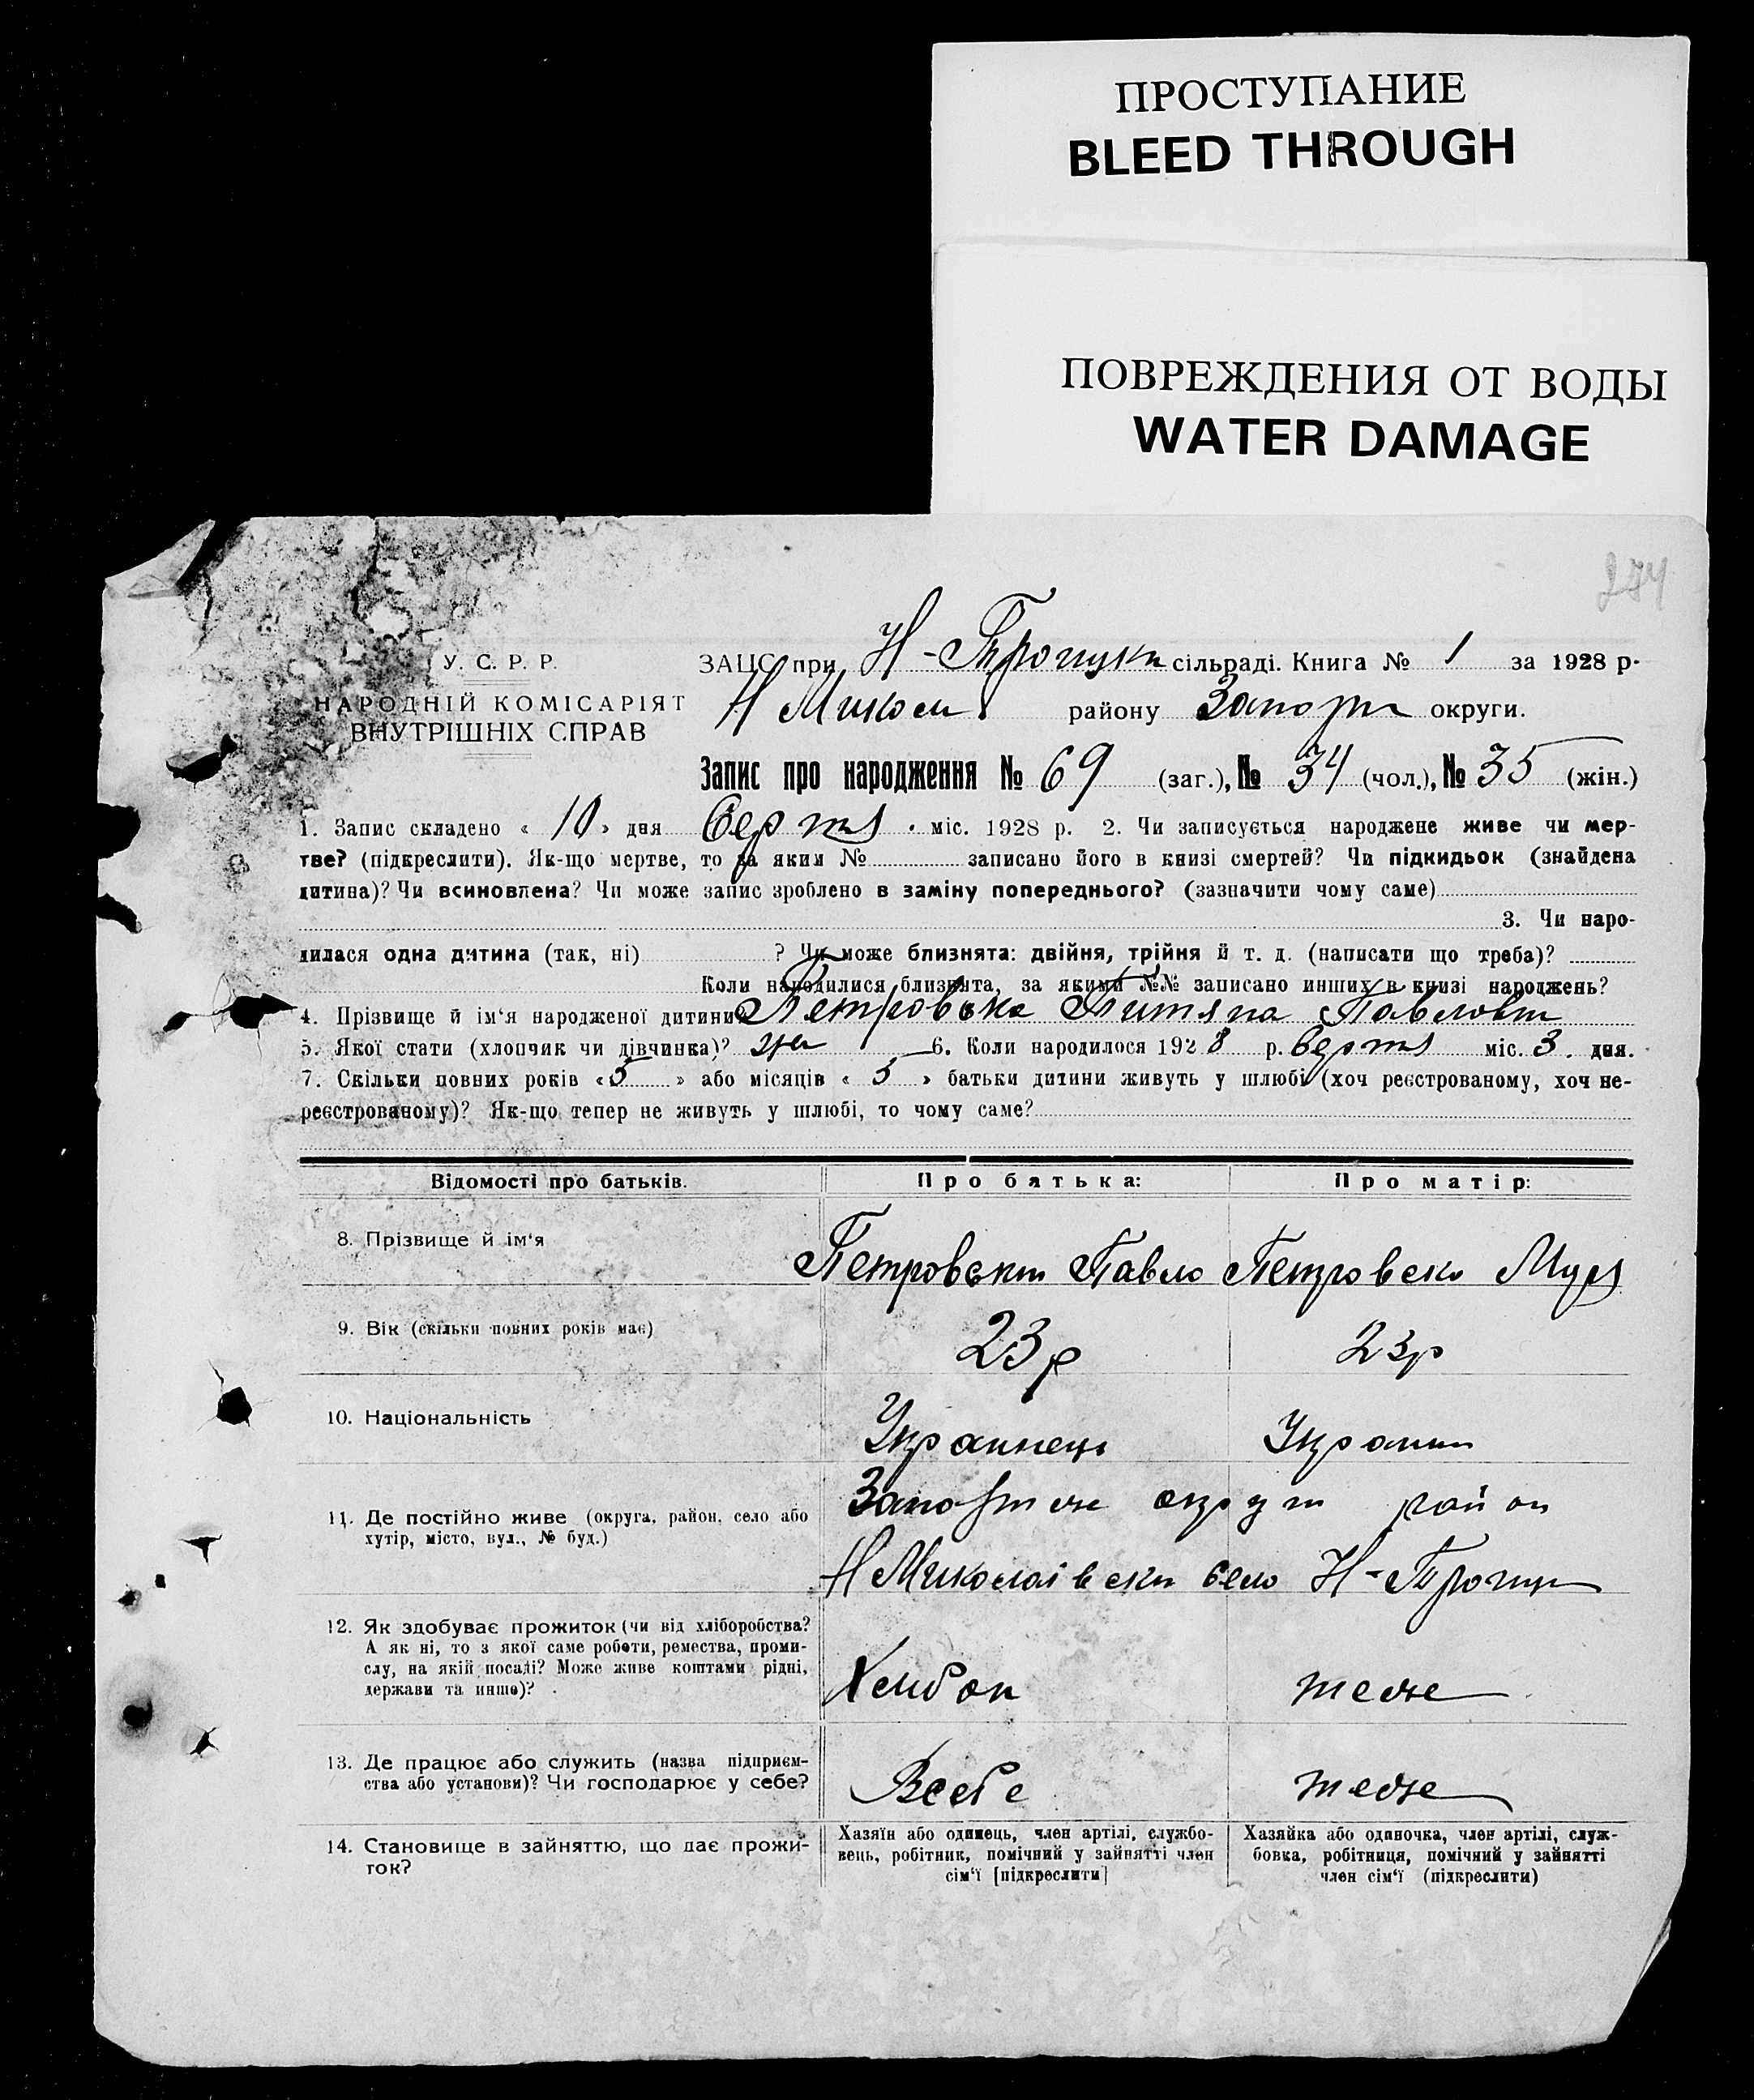 ПРОСТУПАНИЕ
BLEED THROUGH
ПОВРЕЖДЕНИЯ ОТ ВОДЫ
WATER DAMAGE
274
У. С. Р. Р.
НАРОДНІЙ КОМІСАРІЯТ
ВНУТРІШНІХ СПРАВ
ЗАЦС при Н-Трощуки сільраді. Книга № 1 за 1928 р.
Н Микол району Запоріз округи.
Запис про народження № 69 (заг.), № 34 (чол.), № 35 (жін.)
1. Запис складено « 10 » дня міс. 1928 р. 2. Чи записується народжене живе чи мер-
тве? (підкреслити). Як-що мертве, то за яким № записано його в книзі смертей? Чи підкидьок (знайдена
дитина)? Чи всиновлена? Чи може запис зроблено в заміну попереднього? (зазначити чому саме)
3. Чи наро-
дилася одна дитина (так, ні) ? Чи може близнята: двійня, трійня й т. д. (написати що треба)?
Коли народилися близнята, за якими №№ записано инших в книзі народжень?
4. Прізвище й ім‘я народженої дитини? Петровська Павловн
5. Якої стати (хлопчик чи дівчинка)? жін 6. Коли народилося 1928 р. міс. 3. дня.
7. Скільки повних років « 5 » або місяців « 5 » батьки дитини живуть у шлюбі (хоч реєстрованому, хоч не-
реєстрованому)? Як-що тепер не живуть у шлюбі, то чому саме?
Відомості про батьків. Про батька: Про матір:
8. Прізвище й ім‘я Петровськи Павло Петровска
9. Вік (скільки повних років має) 23 р 23 р
10. Національність Украинець Украин
11. Де постійно живе (округа, район, село або
хутір, місто, вул., № буд.)
округи район
Н Миколаівски село Н-Трощук
12. Як здобуває прожиток (чи від хліборобства?
А як ні, то з якої саме роботи, ремества, проми-
слу, на якій посаді? Може живе коштами рідні,
держави та инше)?
Хлибоп теже
13. Де працює або служить (назва підприєм-
ства або установи)? Чи господарює у себе?
Всебе теже
14. Становище в зайняттю, що дає прожи-
ток?
Хазяїн або одинець, член артілі, службо-
вець, робітник, помічний у зайнятті член
сім‘ї [підкреслити]
Хазяйка або одиночка, член артілі, служ-
бовка, робітниця, помічний у зайнятті
член сім‘ї (підкреслити)